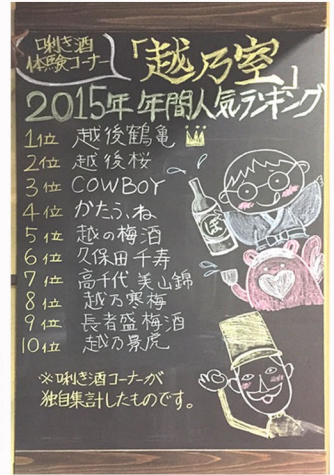 唎き酒
体験コーナー
「越乃室」
2015年 年間人気ランキング
1位 越後鶴亀
2位 越後桜
3位 COWBOY
4位 かたふね
5位 越の梅酒
6位 久保田 千寿
7位 高千代 美山錦
8位 越乃寒梅
9位 長者盛 梅酒
10位 越乃景虎
※唎き酒コーナーが
独自集計したものです。